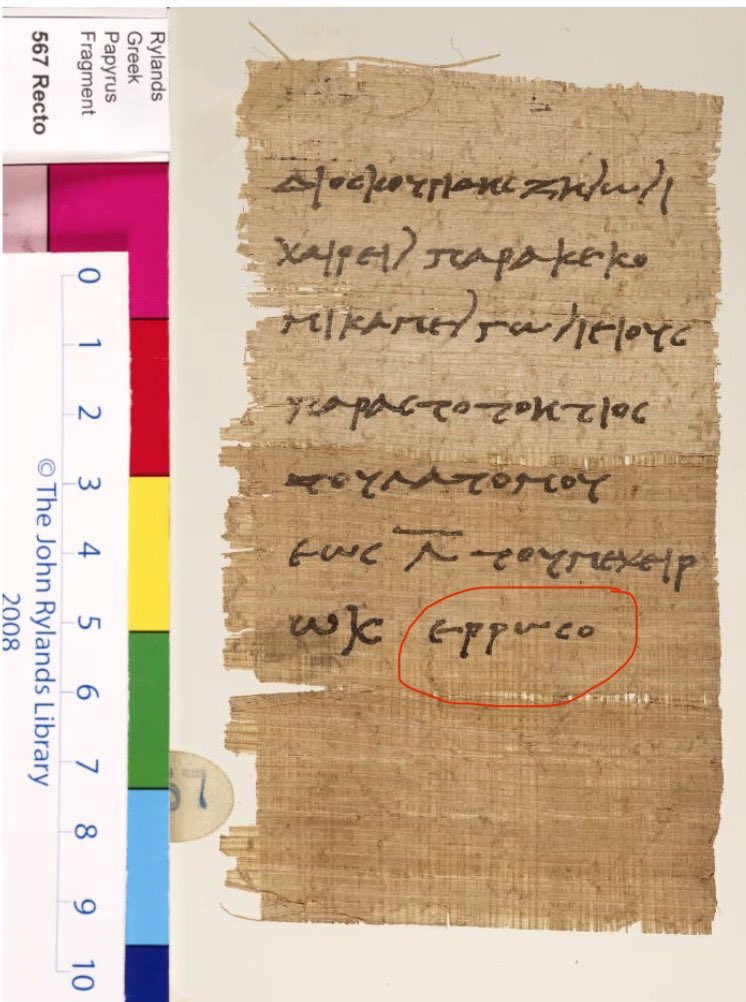 Rylands
Greek
Papyrus
Fragment
567 Recto
0 1 2 3 4 5 6 7 8 9 10
© The John Rylands Library
2008
ζηνωνι
χαιρειν παρακεκο
μικαμεν γωνιειους
παραστοτοητιος
του λατομου
εως λ̅ του μεχειρ
ερρωσο